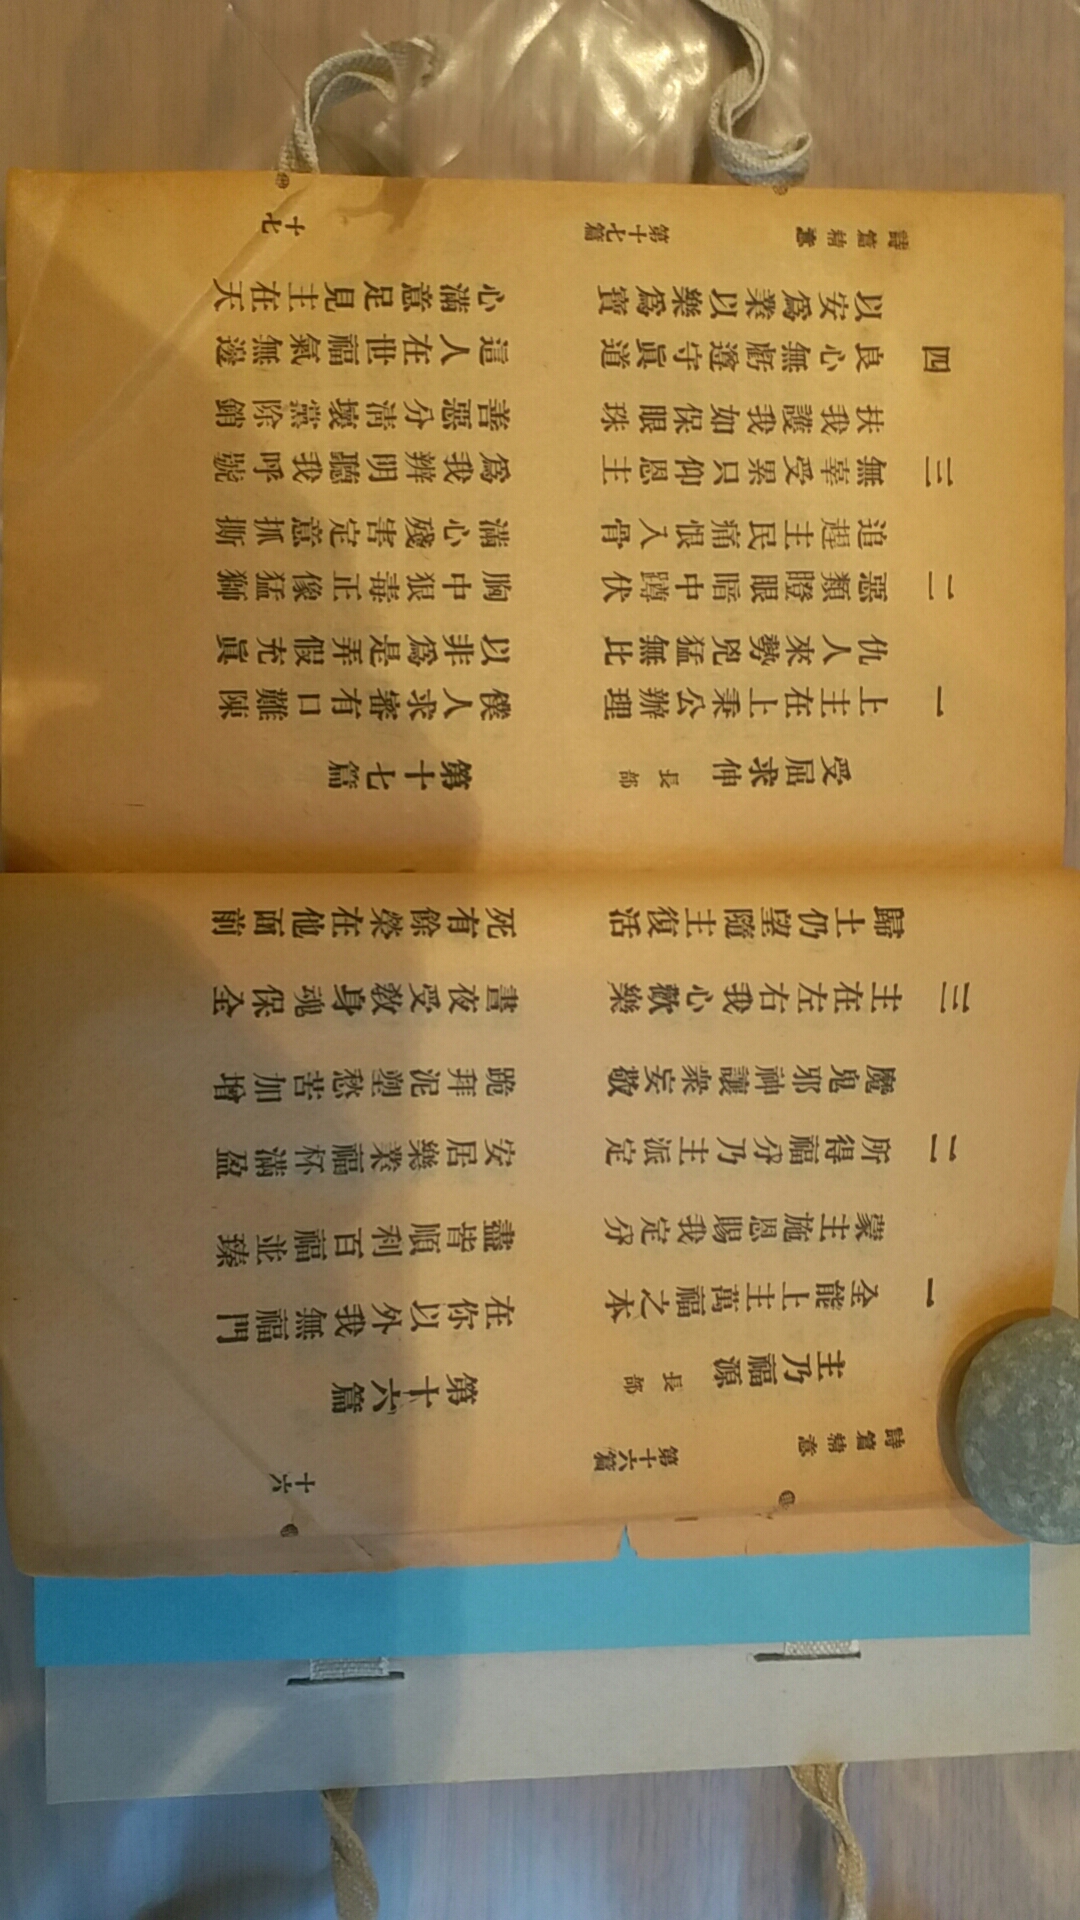 詩篇精意 第十六篇 十六
主乃福源 長部 第十六篇
一 全能上主萬福之本 在你以外我無福門
蒙主施恩賜我定分 盡皆順利百福並臻
二 所得福分乃主派定 安居樂業福杯滿盈
魔鬼邪神讓衆妄敬 跪拜泥塑愁苦加增
三 主在左右我心歡樂 晝夜受教身魂保全
歸土仍望隨主復活 死有餘榮在他面前
受屈求伸 長部 第十七篇
一 上主在上秉公辦理 僕人求審有口難陳
仇人來勢兇猛無比 以非爲是弄假充眞
二 惡類瞪眼暗中蹲伏 胸中狠毒正像猛獅
追趕主民痛恨入骨 滿心殘害定意抓撕
三 無辜受累只仰恩主 爲我辨明聽我呼號
扶我護我如保眼珠 善惡分淸壞黨除銷
四 良心無虧遵守眞道 這人在世福氣無邊
以安爲業以樂爲寶 心滿意足見主在天
詩篇精意 第十七篇 十七